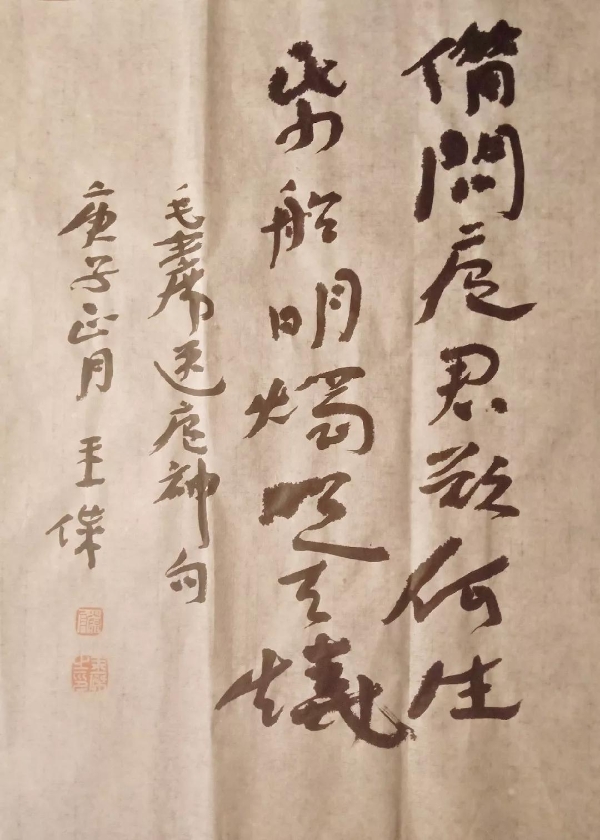 借問瘟君欲何往
帋船明燭照天燒
毛主席送瘟神句
庚子正月 王傑